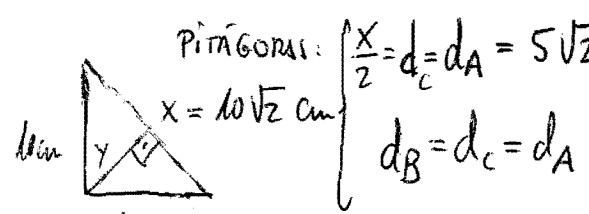 PITÁGORAS: X/2 = d_C = d_A = 5√2
X = 10√2 cm
Y
d_B = d_C = d_A